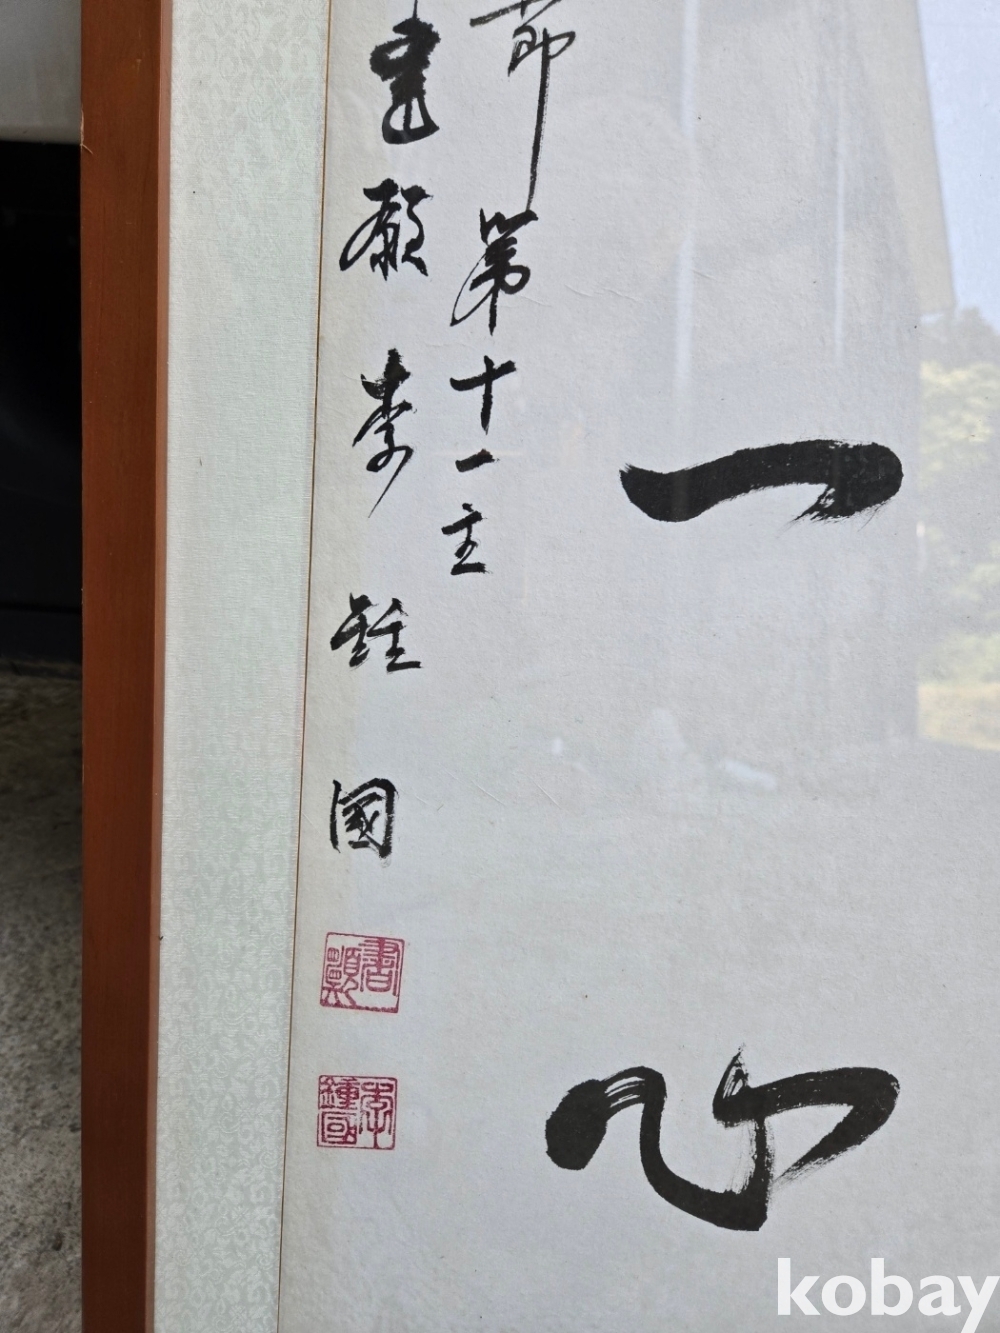 一心
節第十一主
書顚李鍾國
書顚
李鍾國
kobay